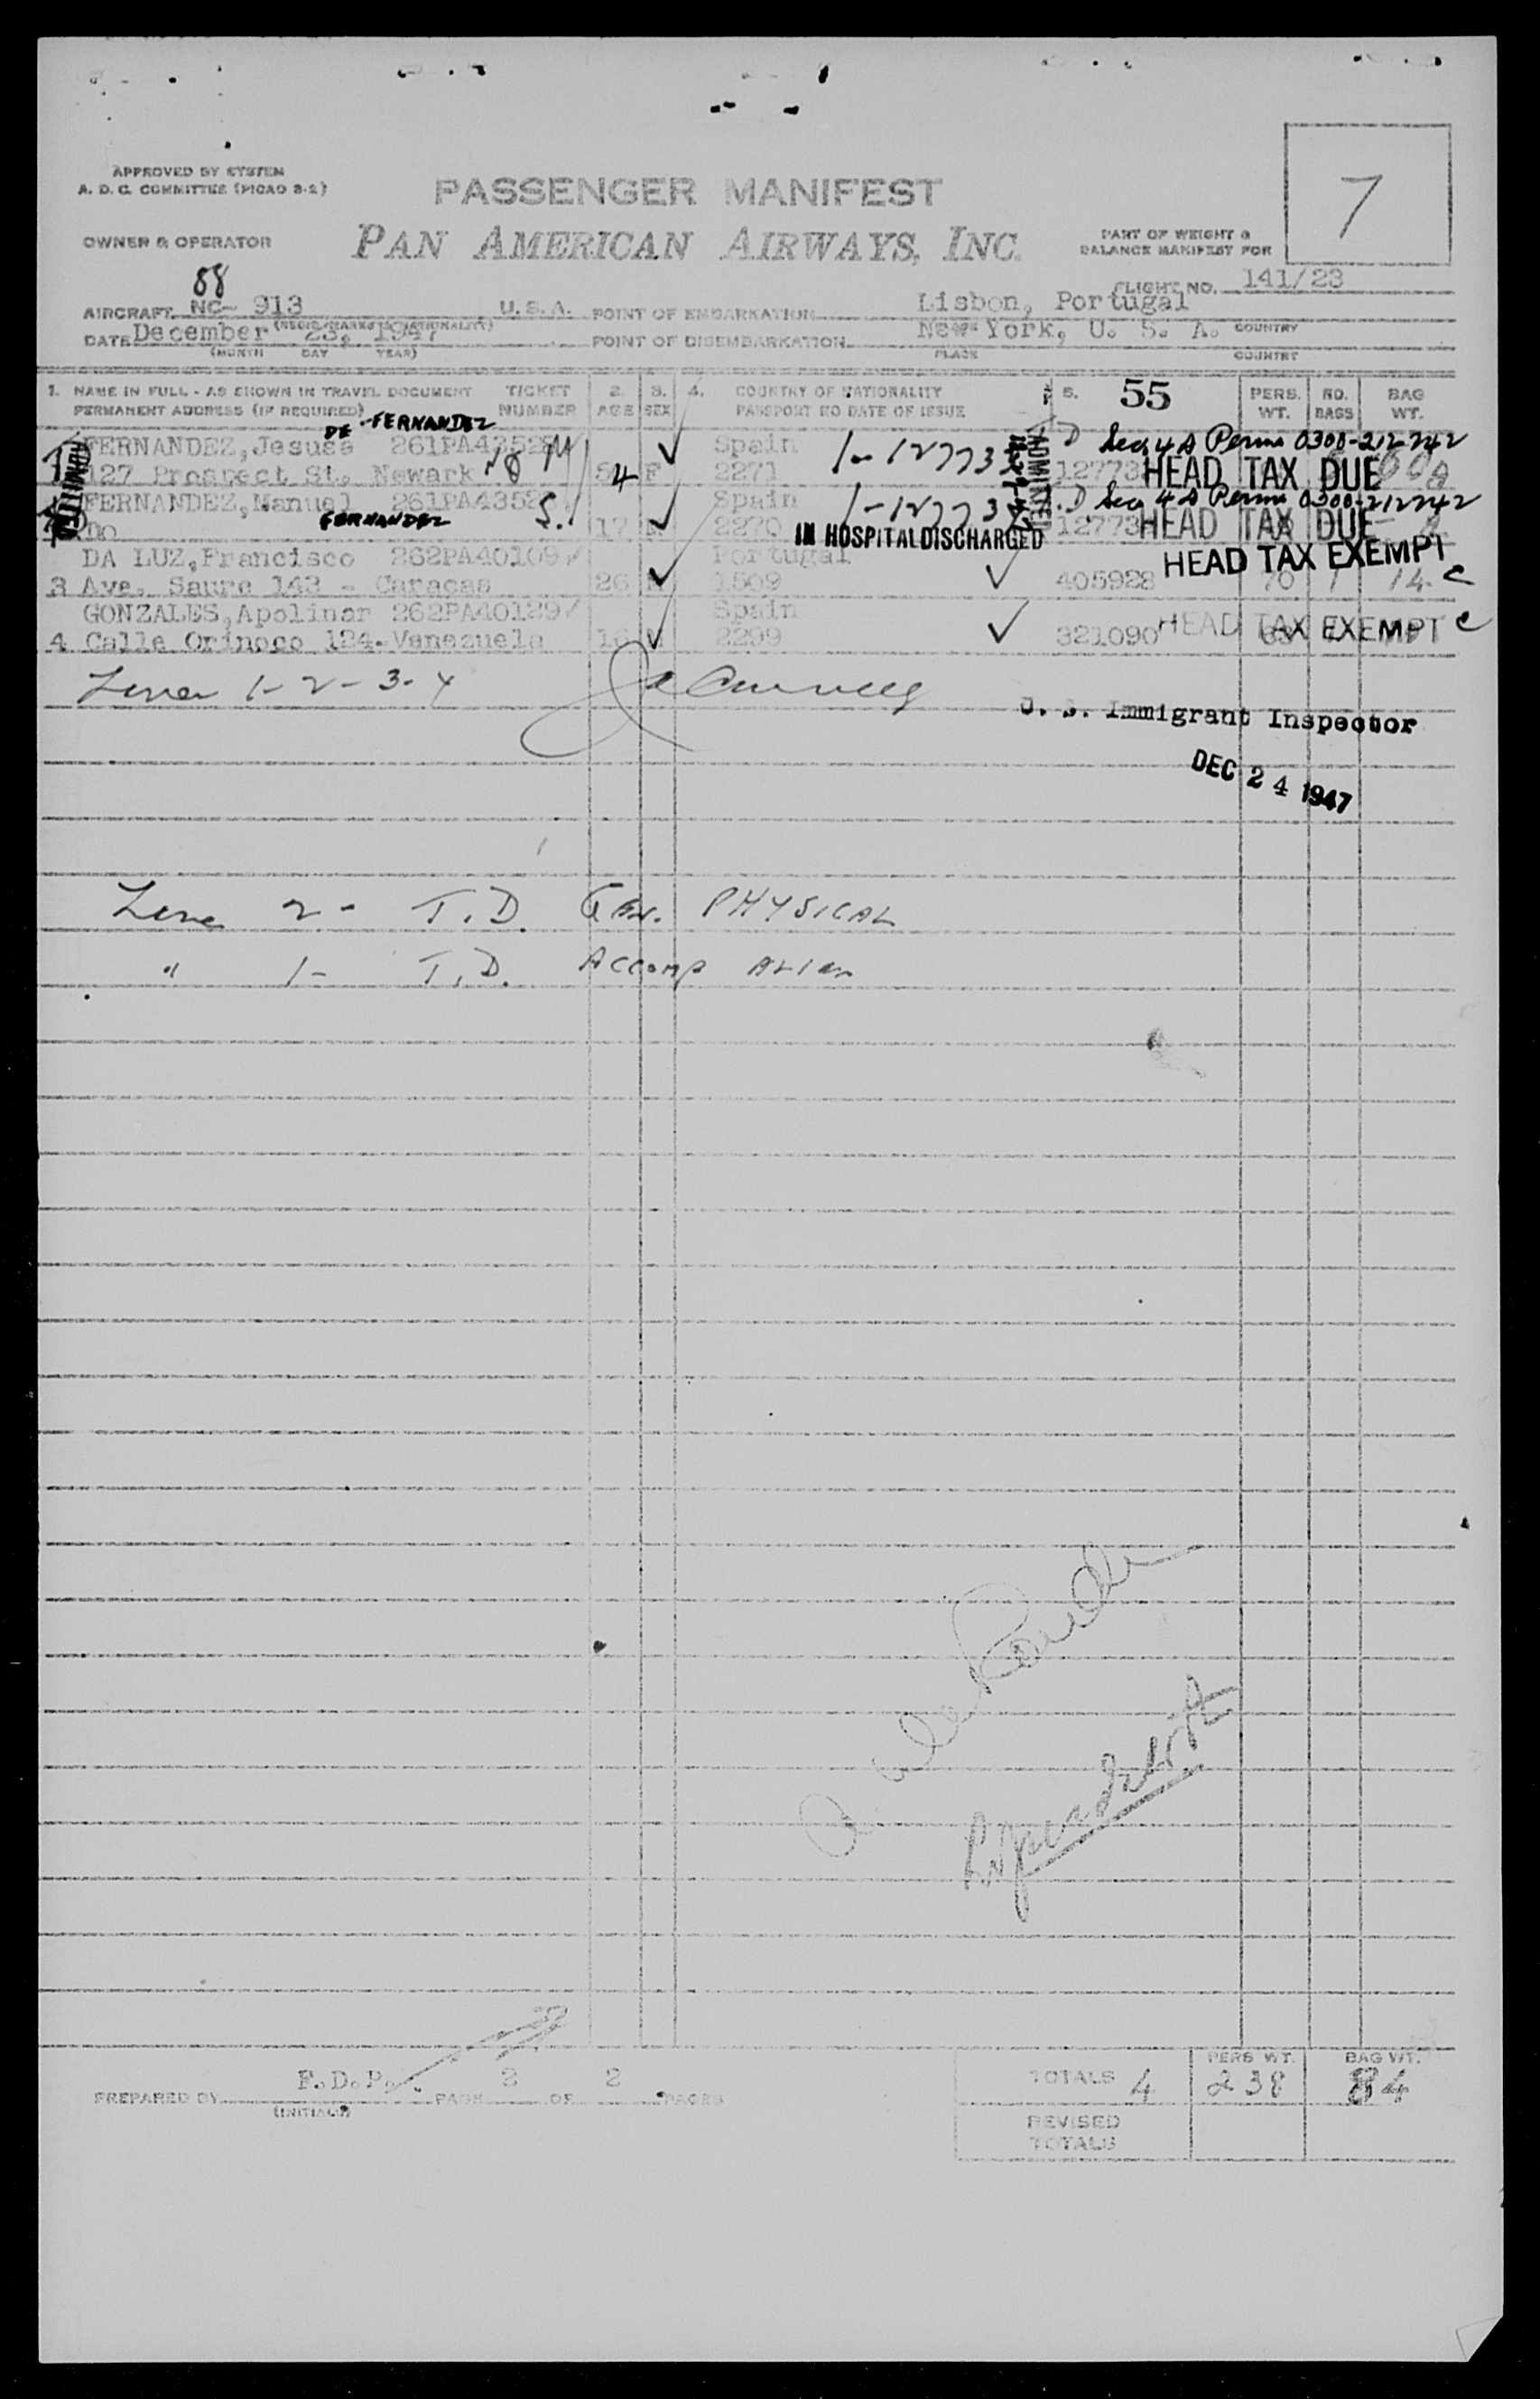 7
APPROVED BY SYSTEM
A. D. C. COMMITTEE (PICAO 3-2)
PASSENGER MANIFEST
OWNER & OPERATOR
PAN AMERICAN AIRWAYS, INC.
PART OF WEIGHT &
BALANCE MANIFEST FOR
88
FLIGHT NO. 141/23
AIRCRAFT NC- 913 U.S.A. POINT OF EMBARKATION Lisbon, Portugal
DATE December 23, 1947 POINT OF DISEMBARKATION New York, U. S. A. COUNTRY
(MONTH DAY YEAR) PLACE COUNTRY
1. NAME IN FULL - AS SHOWN IN TRAVEL DOCUMENT TICKET 2. 3. 4. COUNTRY OF NATIONALITY 5. 55 PERS. NO. BAG
PERMANENT ADDRESS (IF REQUIRED) NUMBER AGE SEX PASSPORT NO DATE OF ISSUE WT. BAGS WT.
DE FERNANDEZ
FERNANDEZ, Jesusa 261PA4352 M Spain D Sec 4 D Perm 0300-212742
127 Prospect St. Newark 18 4 F 2271 HEAD TAX DUE
FERNANDEZ, Manuel 261PA4352 S. Spain D Sec 4 D Perm 0300-212742
DO FERNANDEZ 17 M 2270 IN HOSPITAL DISCHARGED ADMITTED HEAD TAX DUE
DA LUZ, Francisco 262PA40109 Portugal HEAD TAX EXEMPT
3 Ave. Saure 143 - Caracas 26 M 1509 405928 70 1 14 C
GONZALES, Apolinar 262PA40129 Spain
4 Calle Orinoco 124. Vanezuela M 2299 321090 HEAD TAX EXEMPT C
Lines 1-2-3-4
U. S. Immigrant Inspector
DEC 24 1947
Line 2- T.D. Gen. PHYSICAL
" 1- T.D. Accomp Alien
PREPARED BY F.D.P. PAGE 2 OF 2 PAGES
(INITIALS)
PERS WT. BAG WT.
TOTALS 4 238 84
REVISED
TOTALS